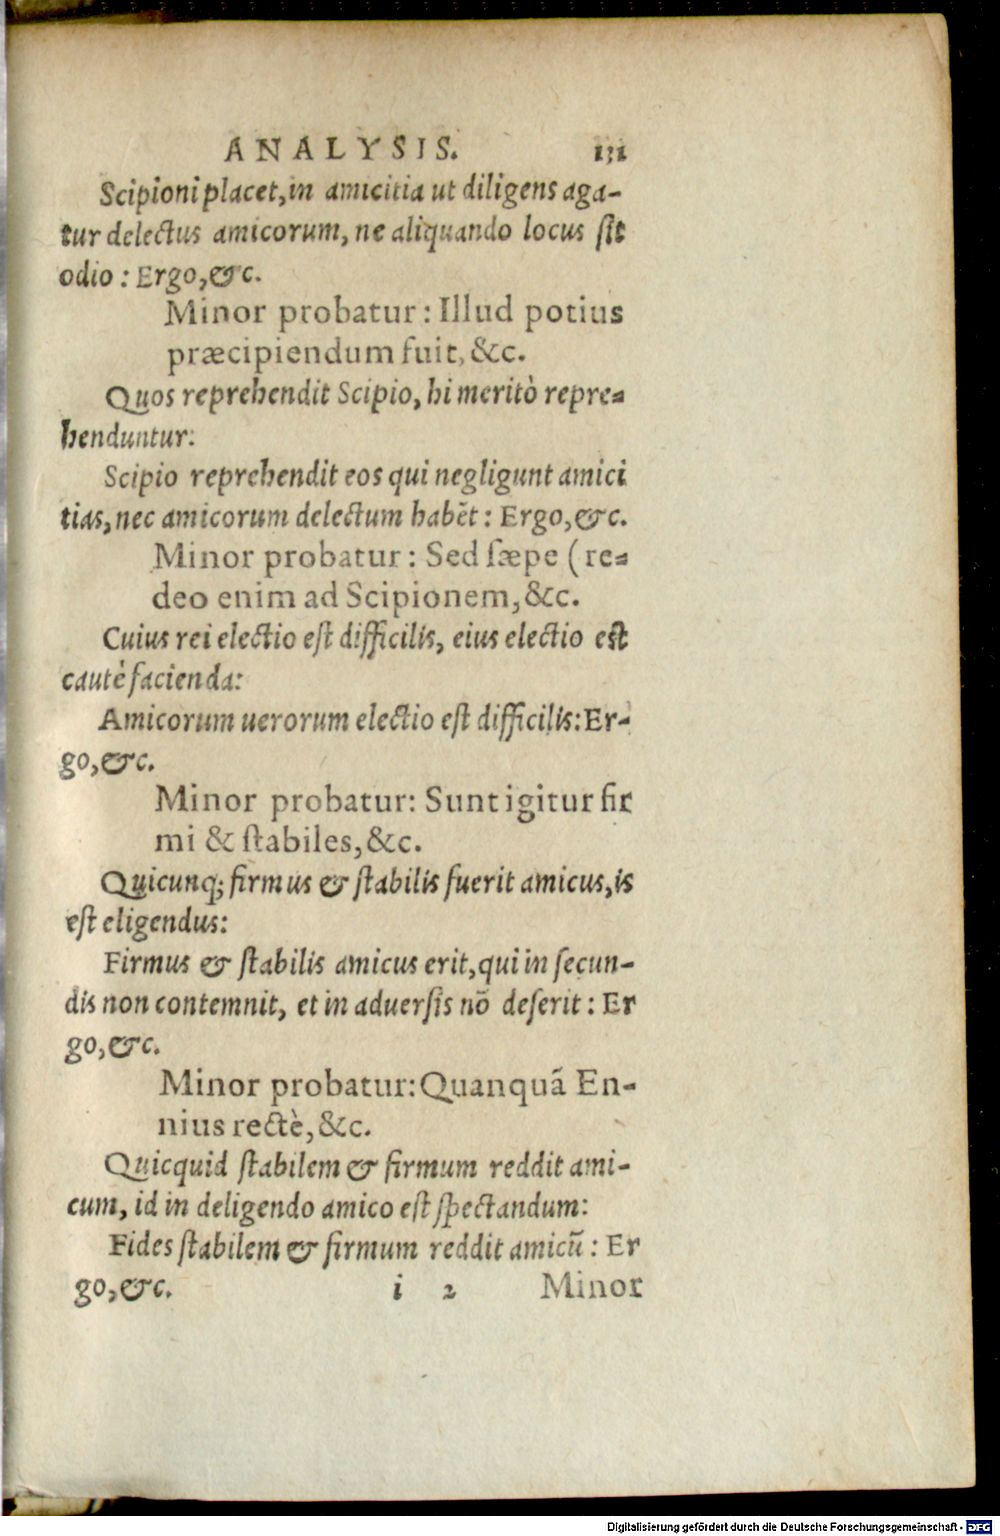 ANALYSIS. 131
Scipioni placet, in amicitia ut diligens aga-
tur delectus amicorum, ne aliquando locus ſit
odio: Ergo, &c.
Minor probatur: Illud potius
præcipiendum fuit, &c.
Quos reprehendit Scipio, hi meritò repre-
henduntur:
Scipio reprehendit eos qui negligunt amici
tias, nec amicorum delectum habēt: Ergo, &c.
Minor probatur: Sed ſæpe (re-
deo enim ad Scipionem, &c.
Cuius rei electio eſt difficilis, eius electio eſt
cautè facienda:
Amicorum uerorum electio eſt difficilis: Er-
go, &c.
Minor probatur: Sunt igitur fir
mi & ſtabiles, &c.
Quicunq; firmus & ſtabilis fuerit amicus, is
eſt eligendus:
Firmus & ſtabilis amicus erit, qui in ſecun-
dis non contemnit, et in aduerſis nō deſerit: Er
go, &c.
Minor probatur: Quanquā En-
nius rectè, &c.
Quicquid ſtabilem & firmum reddit ami-
cum, id in deligendo amico eſt ſpectandum:
Fides ſtabilem & firmum reddit amicū: Er
go, &c. i 2 Minor
Digitalisierung gefördert durch die Deutsche Forschungsgemeinschaft - DFG